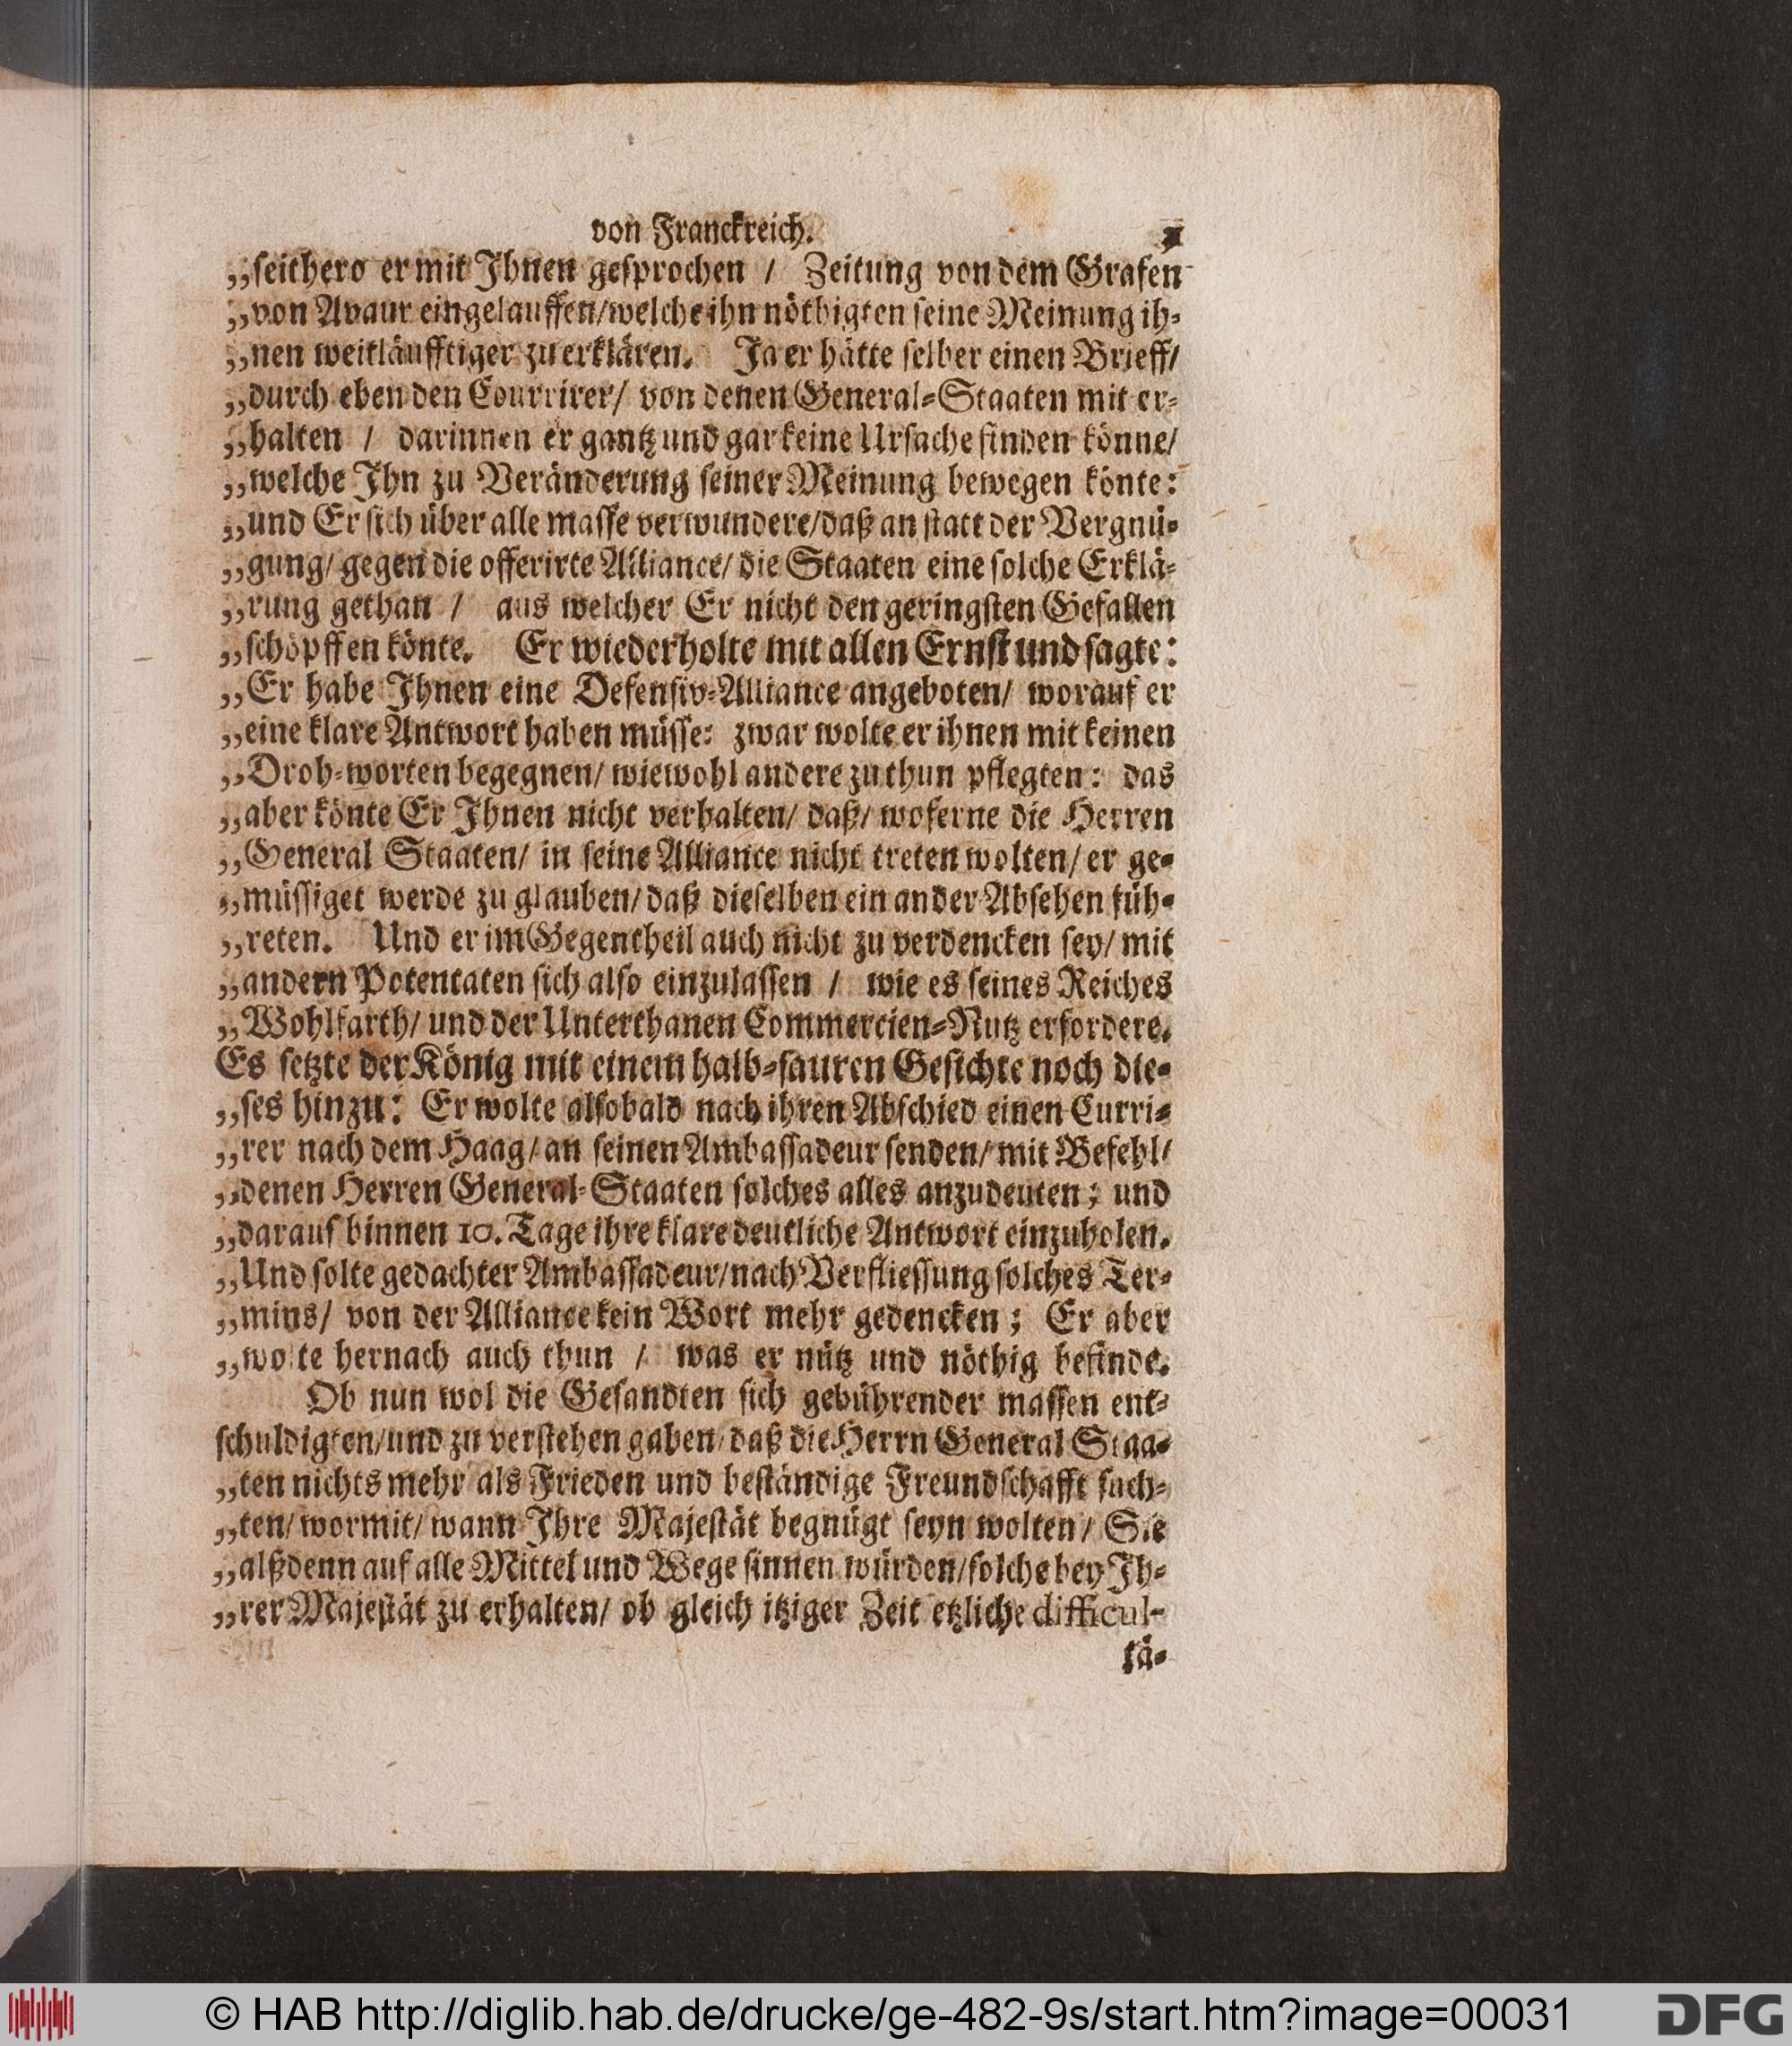 von Franckreich.
„ſeithero er mit Ihnen geſprochen / Zeitung von dem Grafen
„von Avaur eingelauffen/welche ihn nöthigten ſeine Meinung ih-
„nen weitläufftiger zu erklären. Ja er hätte ſelber einen Brieff/
„durch eben den Courrirer/ von denen General-Staaten mit er-
„halten / darinnen er gantz und gar keine Urſache finden könne/
„welche Ihn zu Veränderung ſeiner Meinung bewegen könte:
„und Er ſich über alle maſſe verwundere/daß an ſtatt der Vergnü-
„gung/ gegen die offerirte Alliance/ die Staaten eine ſolche Erklä-
„rung gethan / aus welcher Er nicht den geringſten Gefallen
„ſchöpffen könte. Er wiederholte mit allen Ernſt und ſagte:
„Er habe Ihnen eine Defenſiv-Alliance angeboten/ worauf er
„eine klare Antwort haben müſſe: zwar wolte er ihnen mit keinen
„Droh-worten begegnen/ wiewohl andere zu thun pflegten: das
„aber könte Er Ihnen nicht verhalten/ daß/ woferne die Herren
„General Staaten/ in ſeine Alliance nicht treten wolten/ er ge-
„müſſiget werde zu glauben/ daß dieſelben ein ander Abſehen füh-
„reten. Und er im Gegentheil auch nicht zu verdencken ſey/ mit
„andern Potentaten ſich alſo einzulaſſen / wie es ſeines Reiches
„Wohlfarth/ und der Unterthanen Commercien-Nutz erfordere.
Es ſetzte der König mit einem halb-ſauren Geſichte noch die-
„ſes hinzu: Er wolte alſobald nach ihren Abſchied einen Curri-
„rer nach dem Haag/ an ſeinen Ambaſſadeur ſenden/ mit Befehl/
„denen Herren General-Staaten ſolches alles anzudeuten; und
„darauf binnen 10. Tage ihre klare deutliche Antwort einzuholen.
„Und ſolte gedachter Ambaſſadeur/nach Verflieſſung ſolches Ter-
„mins/ von der Alliance kein Wort mehr gedencken; Er aber
„wolte hernach auch thun / was er nütz und nöthig befinde.
Ob nun wol die Geſandten ſich gebührender maſſen ent-
ſchuldigten/und zu verſtehen gaben/ daß die Herrn General Staa-
„ten nichts mehr als Frieden und beſtändige Freundſchafft ſuch-
„ten/ wormit/ wann Ihre Majeſtät begnügt ſeyn wolten/ Sie
„alßdenn auf alle Mittel und Wege ſinnen würden/ſolche bey Ih-
„rer Majeſtät zu erhalten/ ob gleich itziger Zeit etzliche difficul-
tä-
© HAB http://diglib.hab.de/drucke/ge-482-9s/start.htm?image=00031
DFG